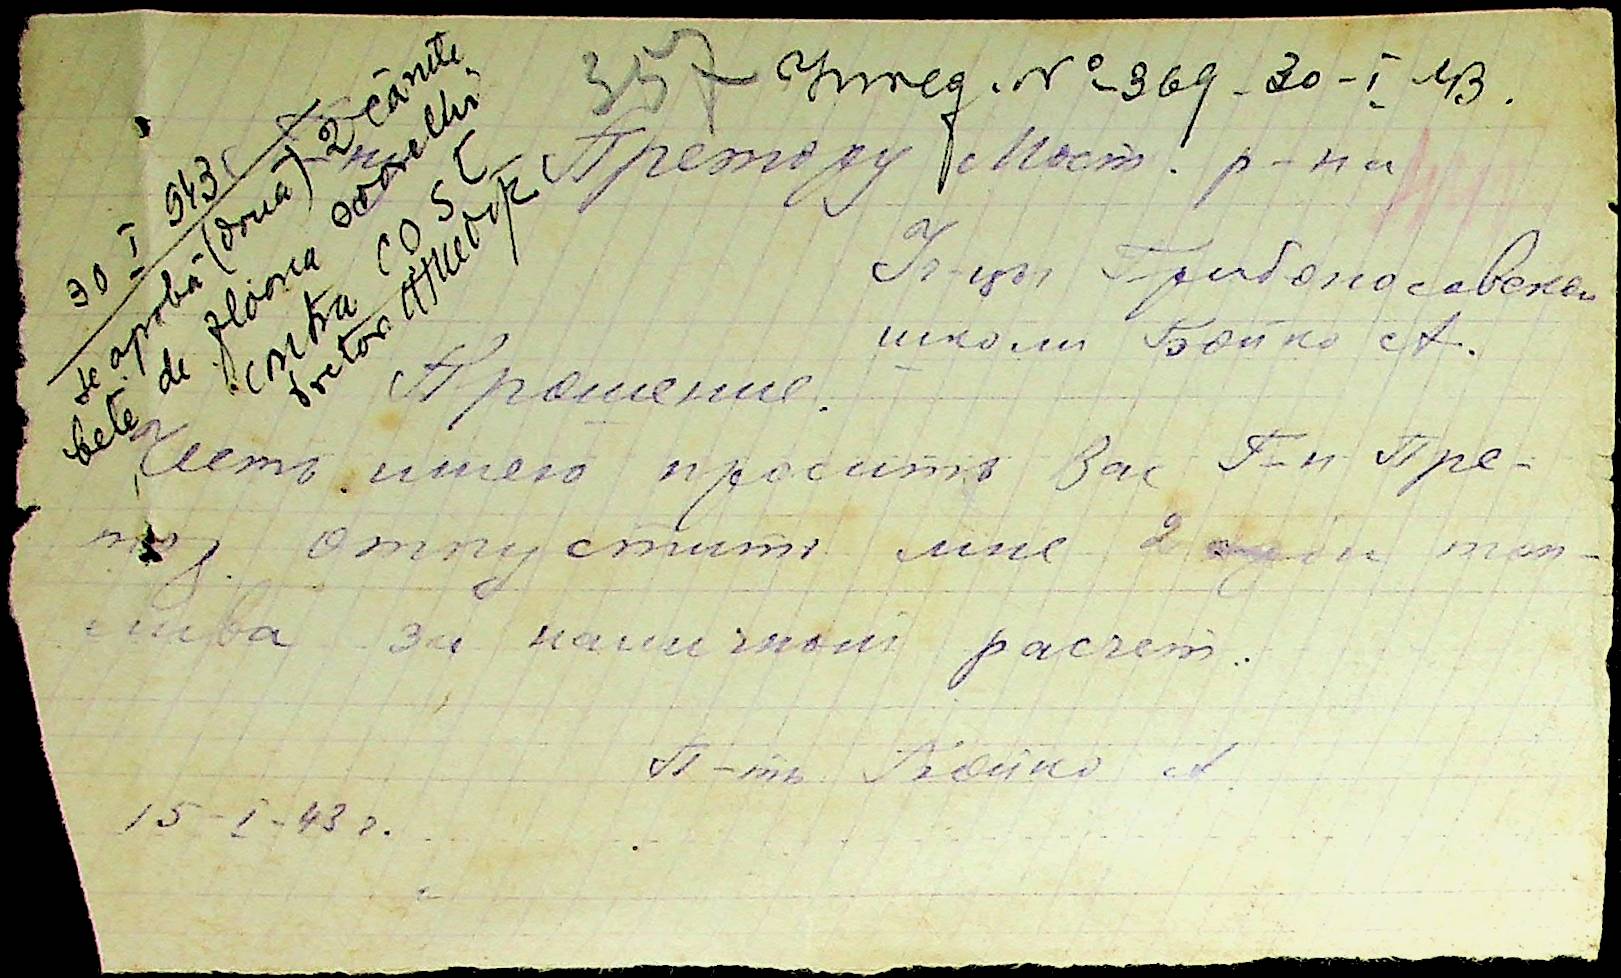 357 Înreg. № 369 - 30 - I 43.
30 I 943
se aprobă (două) 2 cărute
bete de floarea soarelui
contra COST
Pretor
Г-ну Претору Мост. р-на
Уч-цы
школи Бойко А.
Прошение.
Честь имею просить Вас Г-н Пре-
тор. отпустить мне 2 топ-
лива за наличный расчет.
П-ть Бойко А.
15-I-43 г.